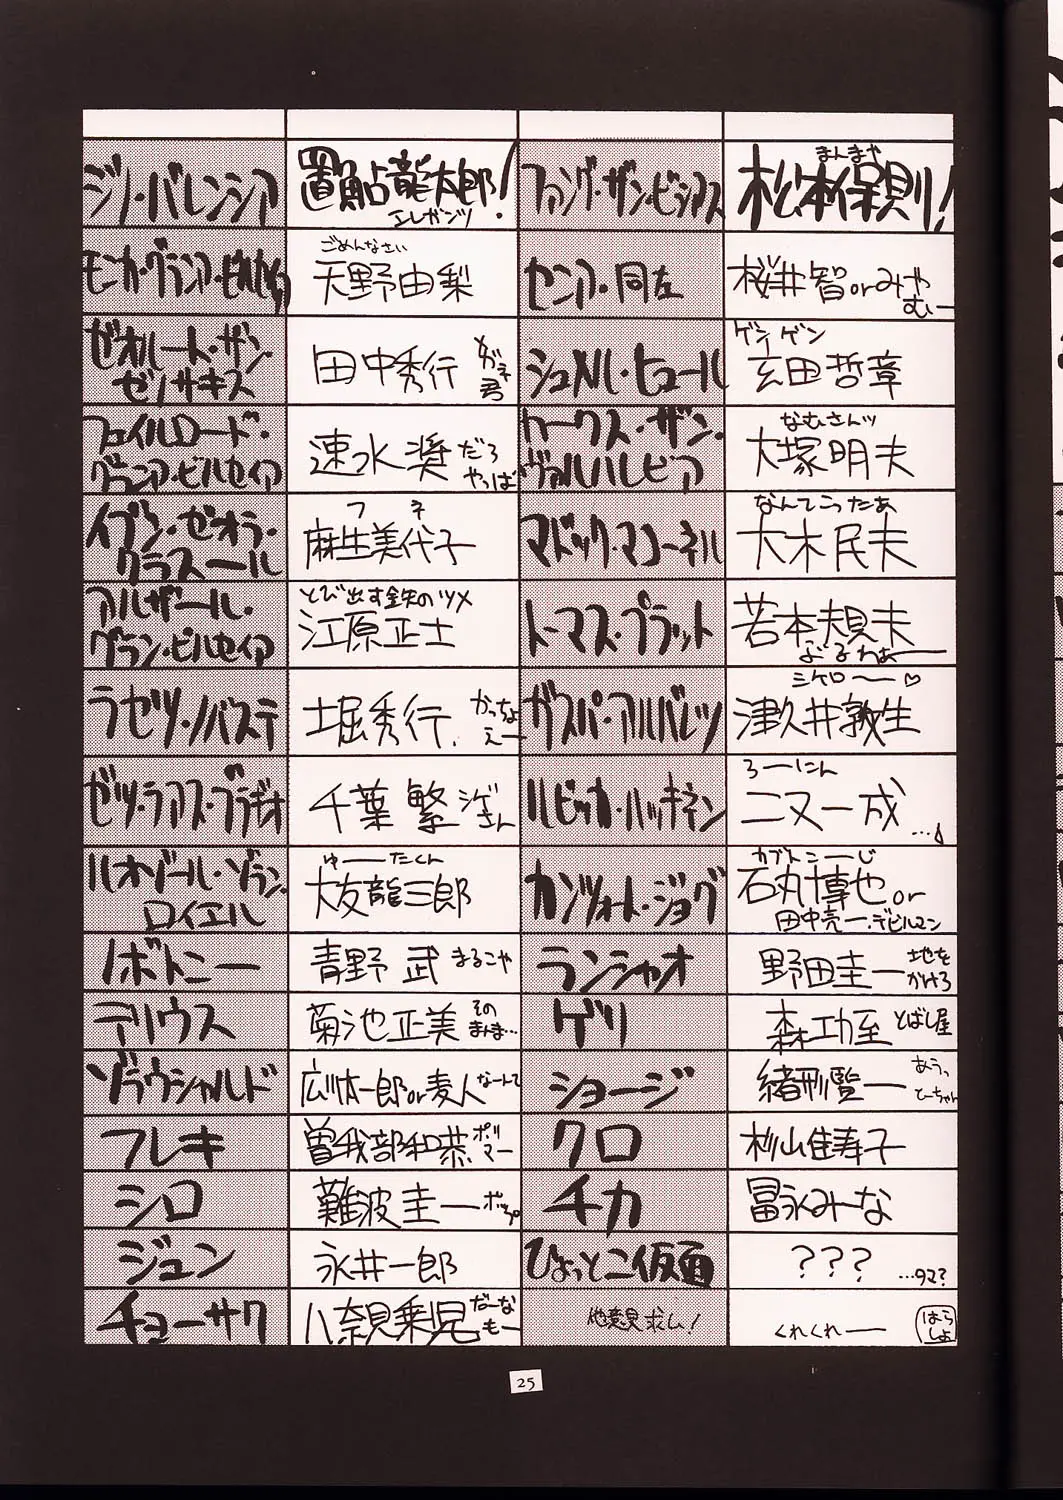 ジノ・バレンシア
置鮎龍太郎!
エレガンツ
ファング・ザン・ビシアス
まんまや
松本保則!
モニカ・グランア・ビルセイア
ごめんなさい
天野由梨
センア・同左
桜井智orみや
むー
ゼオルート・ザン・
ゼノサキス
田中秀行
めがネ君
シュメル・ヒュール
ゲンゲン
玄田哲章
フェイルロード・
グランア・ビルセイア
速水奨だろ
やっぱ
カークス・ザン・
ヴァルハレビア
なむさんッ
大塚明夫
イブン・ゼオラ・
クラスール
フネ
麻生美代子
マドック・マコーネル
なんてこったあ
大木民夫
アルザール・
グラン・ビルセイア
とび出す鉄のツメ
江原正士
トーマス・プラット
若本規夫
ぶるわぁー
ラセツ・ノバステ
土堀秀行.
かっちょ
えー
ガスパ・アルバレツ
ミケロー♡
津久井教生
ゼツ・ラアス・ブラギオ
千葉 繁
シゲさん
ルビッカ・ハッキネン
ろーにん
二又一成
…♪
ルオゾール・ゾラン・
ロイエル
ゆーたくん
大友龍三郎
カンツォート・ジョグ
カブトこーじ
石丸博也or
田中亮一・デビルマン
ノボトニー
青野 武 まるこや
ランシャオ
野田圭一
地を
かけろ
テリウス
菊池正美
その
まんま…
ゲリ
森功至 とばし屋
ゾラウシャルド
広川太一郎or麦人 なーんて
ショージ
緒形賢一
あうっ
とーちゃん
フレキ
曽我部和恭
ポリマー
クロ
杉山佳寿子
シロ
難波圭一 ポップ
チカ
冨永みーな
ジュン
永井一郎
ひょっとこ仮面
???
…タマ?
チョーサク
八奈見乗児
だーな
もー
他意見求ム!
くれくれー
はら
しょ
25